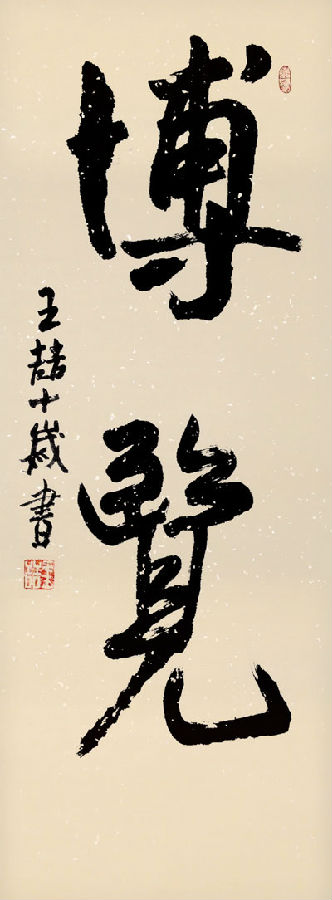 博覽
王喆十歲書